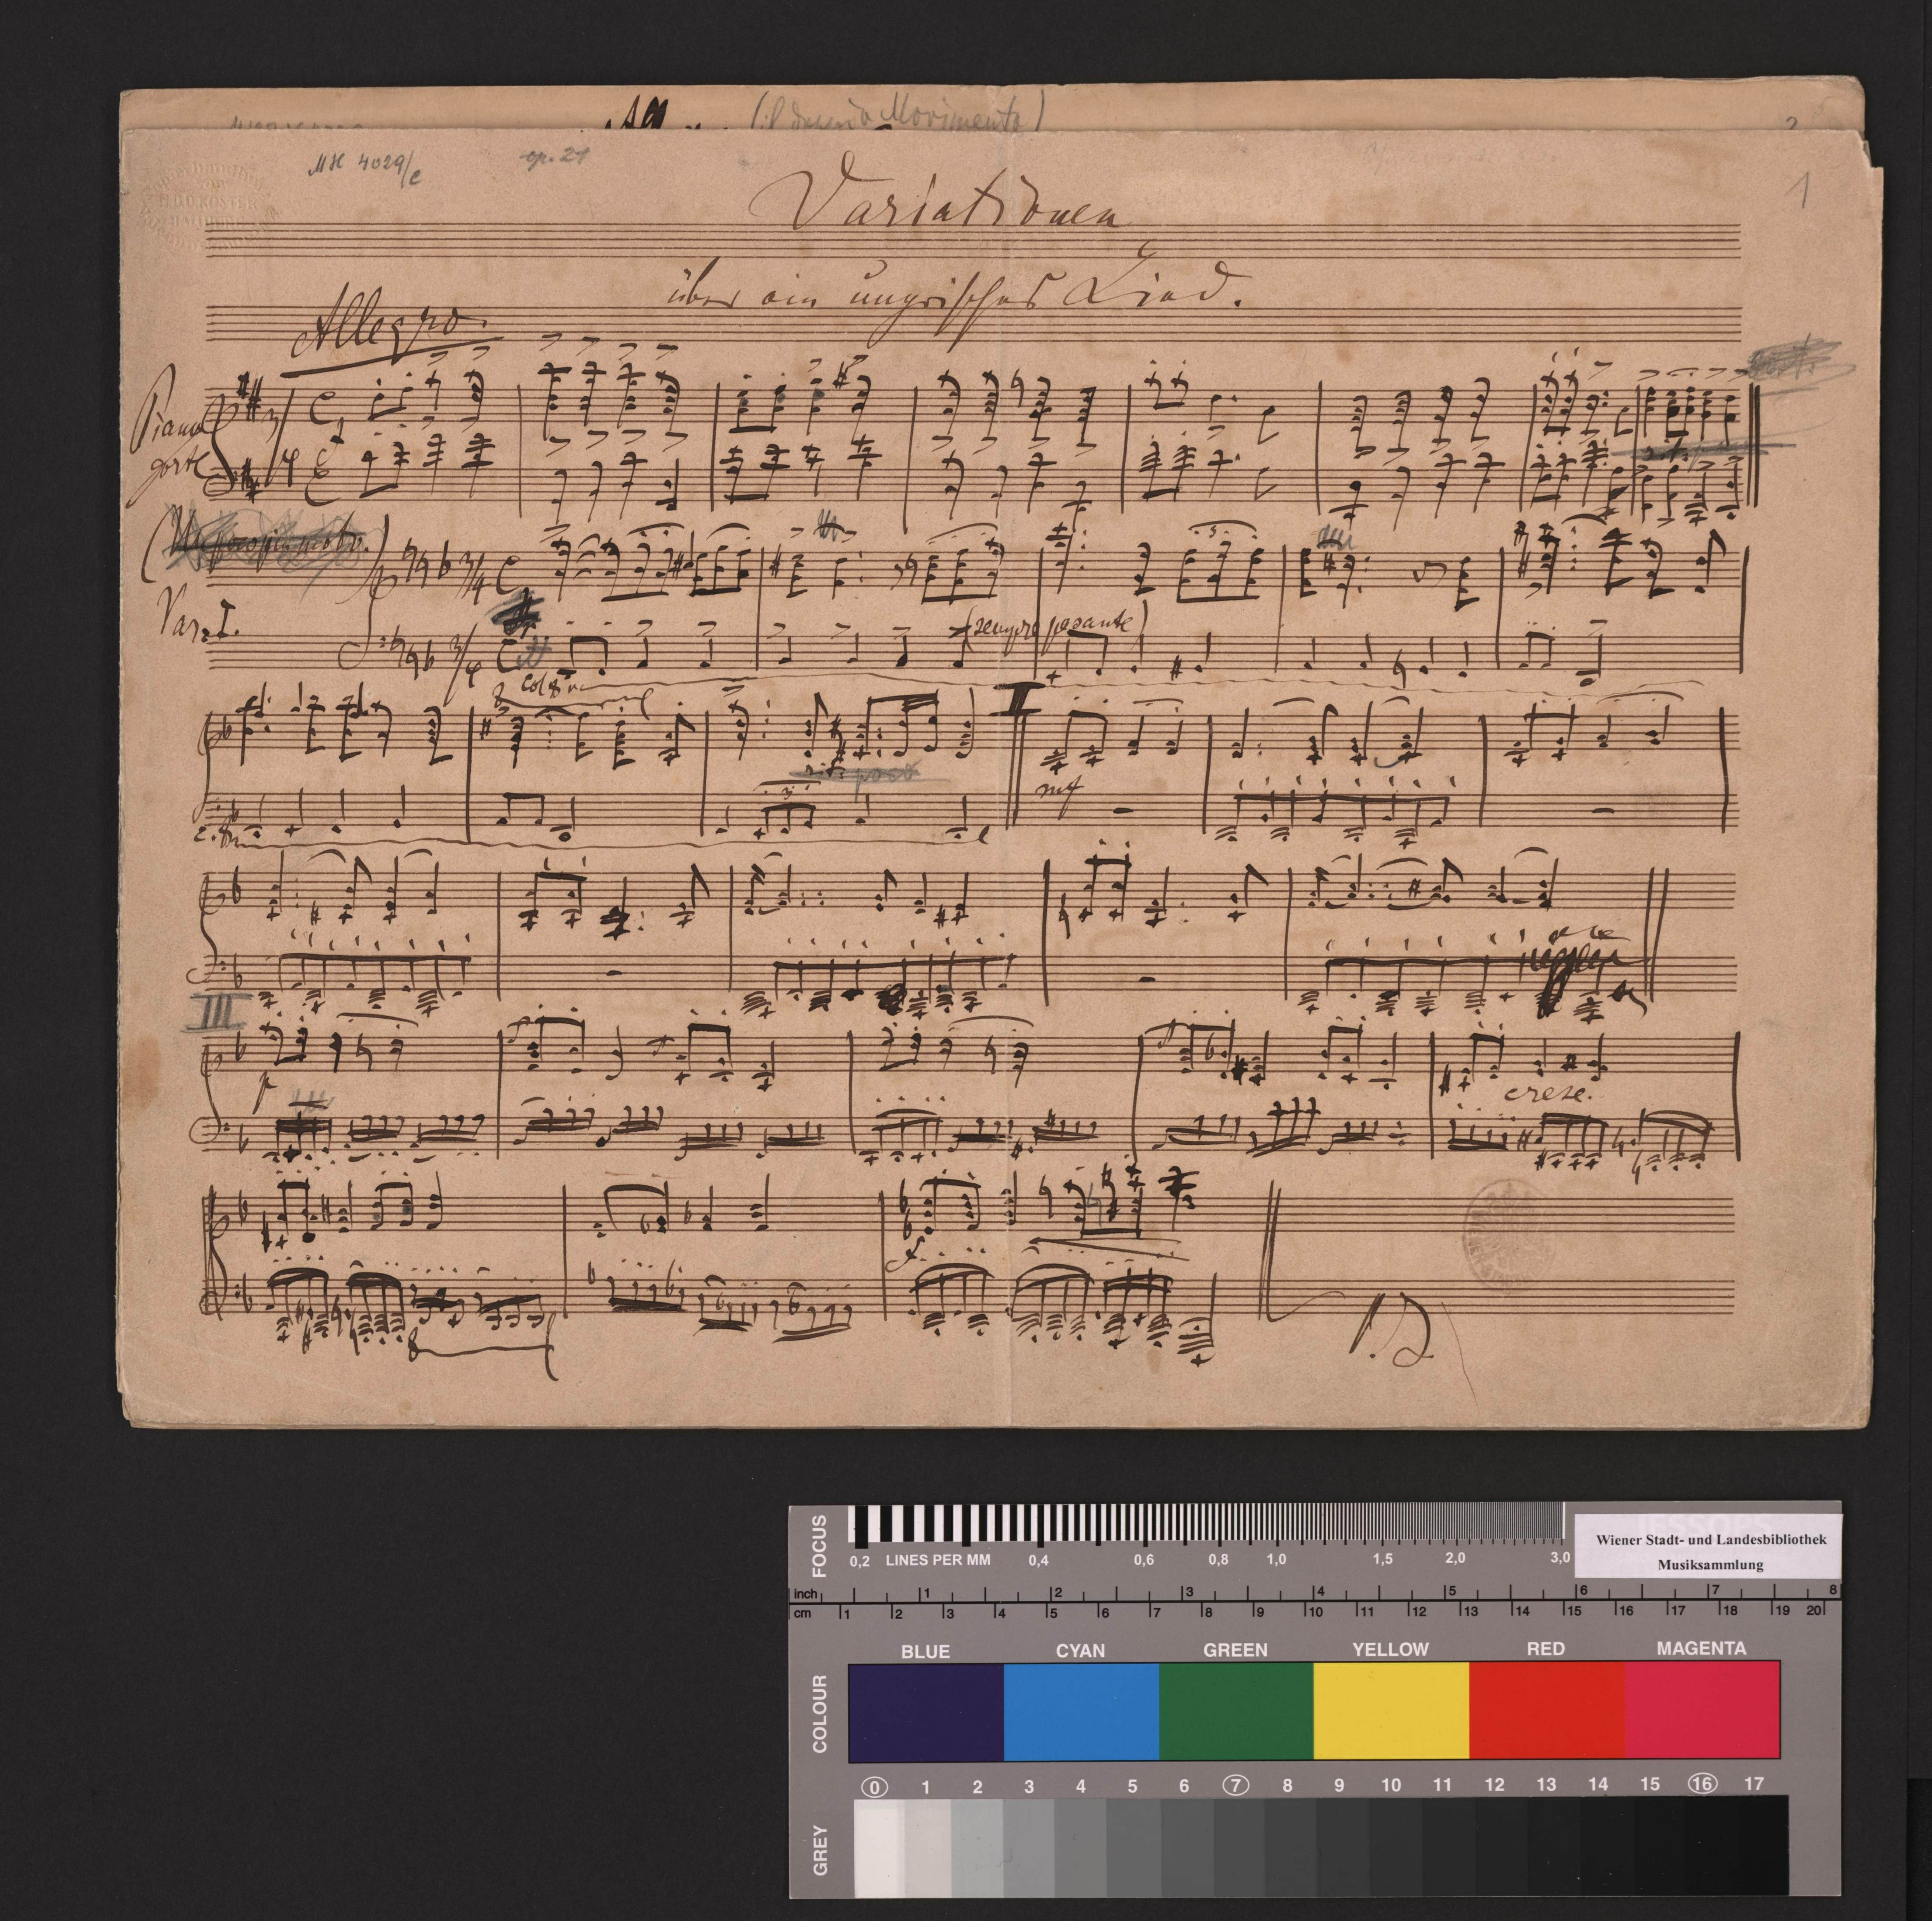 (il doppio Movimento)
2
MH 4029/c
op. 21
1
Variationen
über ein ungrisches Lied.
Allegro.
Piano
forte
3/4 C
3/4 C
Var. I.
3/4 C
3/4 C
(sempre pesante)
col 8va
II
rit. poco
mf
c. 8va
III
p
cresc.
f
8
V. S.
FOCUS
0,2 LINES PER MM 0,4 0,6 0,8 1,0 1,5 2,0 3,0
Wiener Stadt- und Landesbibliothek
Musiksammlung
inch 1 2 3 4 5 6 7 8
cm 1 2 3 4 5 6 7 8 9 10 11 12 13 14 15 16 17 18 19 20
COLOUR
BLUE CYAN GREEN YELLOW RED MAGENTA
0 1 2 3 4 5 6 7 8 9 10 11 12 13 14 15 16 17
GREY